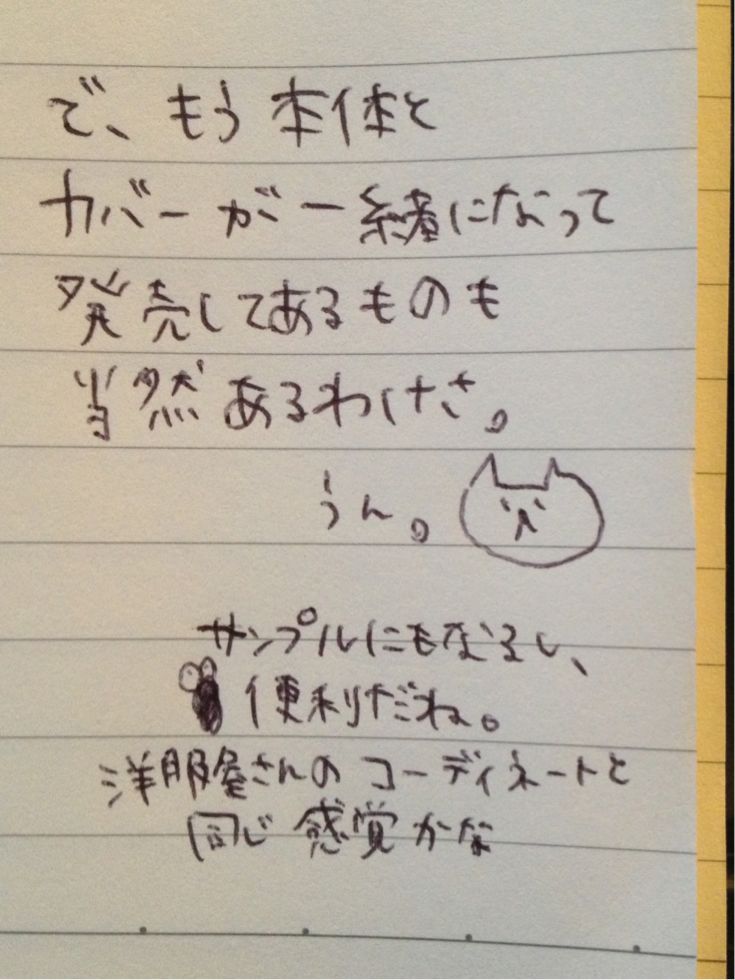 で、もう本体と
カバーが一緒になって
発売してあるものも
当然あるわけさ。
うん。
サンプルにもなるし、
便利だね。
洋服屋さんのコーディネートと
同じ感覚かな